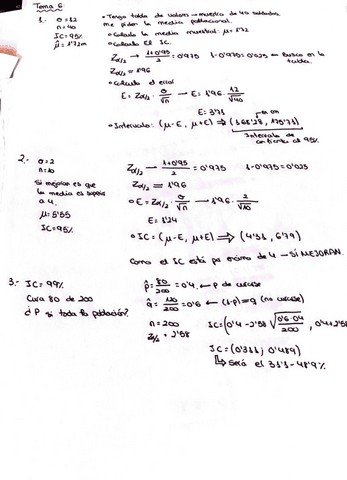 Tema 6
1.- σ=12
n=40
IC=95%
μ̂=1'72m
• Tengo tabla de valores → muestra de 40 soldados
me piden la media poblacional.
• Calculo la media muestral: μ=1'72
• Calculo el IC.
Zα/2 → (1+0'95)/2 = 0'975 1-0'975=0'025 ← Busco en la tabla.
Zα/2 = 1'96
• Calculo el error
E = Zα/2 · σ/√n → E = 1'96 · 12/√40
E = 3'71
• Intervalo: (μ-E, μ+E) ⇒ (168'28, 175'71) → en cm
Intervalo de
confianza al 95%
2.- σ=2
n=10
Si mejoran es que
la media es
a 4.
μ=5'55
IC=95%
Zα/2 → (1+0'95)/2 = 0'975 1-0'975=0'025
Zα/2 = 1'96
• E = Zα/2 · σ/√n → 1'96 · 2/√10
E = 1'24
• IC = (μ-E, μ+E) ⇒ (4'31, 6'79)
Como el IC está por encima de 4 → SÍ MEJORAN.
3.- IC=99%
Cura 80 de 200
¿P si toda la población?
p̂ = 80/200 = 0'4 ← p de curarse
q̂ = 120/200 = 0'6 ← (1-p)=q (no curarse)
n=200
Zα/2 = 2'58
IC=(0'4-2'58 √(0'6·0'4/200), 0'4+2'58
IC = (0'311; 0'489)
↳ Será el 31'1-48'9%